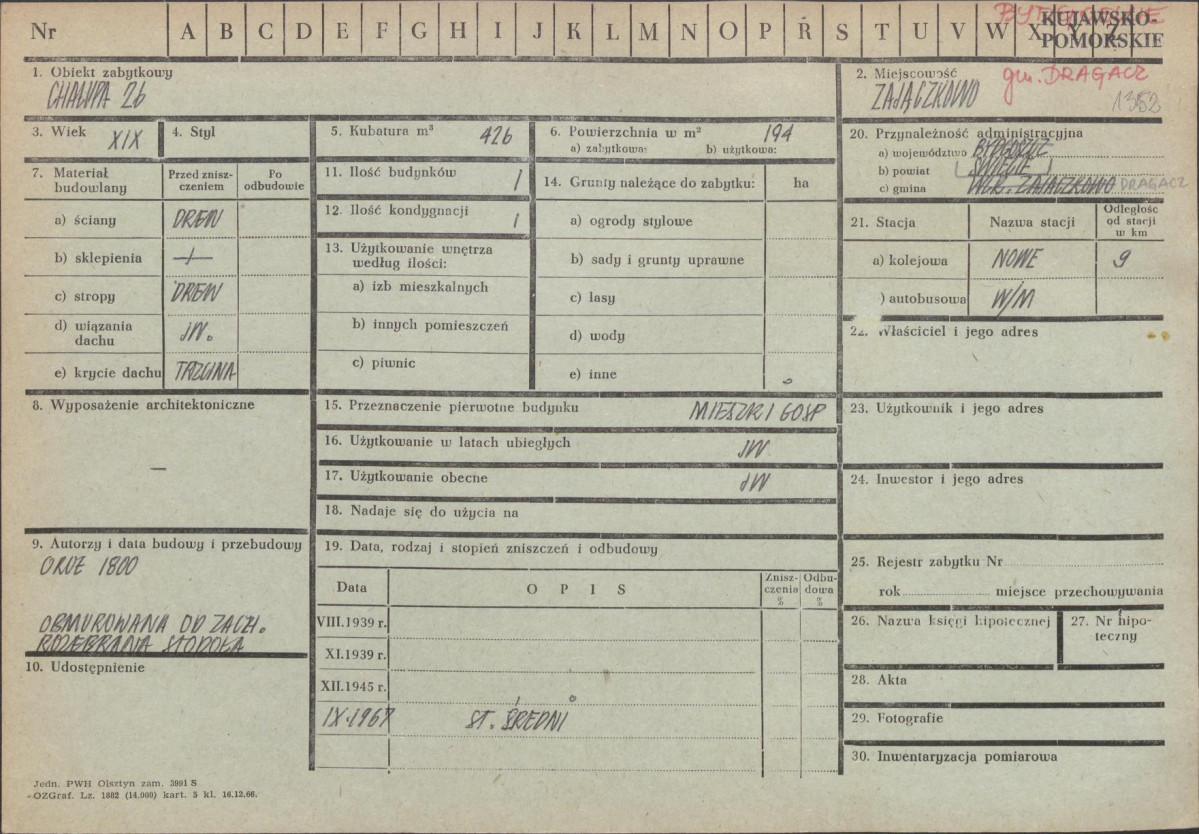 Nr A B C D E F G H I J K L M N O P R S T U V W X Y Z
BYDGOSKIE
KUJAWSKO-
POMORSKIE
1. Obiekt zabytkowy
CHAŁUPA 26
2. Miejscowość
gm. DRAGACZ
ZAJĄCZKOWO
1352
3. Wiek XIX
4. Styl
5. Kubatura m³ 426
6. Powierzchnia w m² 194
a) zabytkowa: b) użytkowa:
20. Przynależność administracyjna
a) województwo BYDGOSZCZ
b) powiat ŚWIECIE
c) gmina ZAJĄCZKOWO DRAGACZ
7. Materiał
budowlany
Przed znisz-
czeniem
Po
odbudowie
a) ściany DREW
b) sklepienia —
c) stropy DREW
d) wiązania
dachu JW.
e) krycie dachu TRZCINA
11. Ilość budynków 1
12. Ilość kondygnacji 1
13. Użytkowanie wnętrza
według ilości:
a) izb mieszkalnych
b) innych pomieszczeń
c) piwnic
14. Grunty należące do zabytku: ha
a) ogrody stylowe
b) sady i grunty uprawne
c) lasy
d) wody
e) inne
21. Stacja
Nazwa stacji
Odległość
od stacji
w km
a) kolejowa NOWE 9
) autobusowa W/M
22. Właściciel i jego adres
8. Wyposażenie architektoniczne
—
15. Przeznaczenie pierwotne budynku MIESZK I GOSP
16. Użytkowanie w latach ubiegłych JW
17. Użytkowanie obecne JW
18. Nadaje się do użycia na
23. Użytkownik i jego adres
24. Inwestor i jego adres
9. Autorzy i data budowy i przebudowy
1800
OBMUROWANA OD ZACH.
ROZEBRANA STODOŁA
10. Udostępnienie
19. Data, rodzaj i stopień zniszczeń i odbudowy
Data
O P I S
Znisz-
czenia
%
Odbu-
dowa
%
VIII.1939 r.
XI.1939 r.
XII.1945 r.
IX.1967 ST. ŚREDNI
25. Rejestr zabytku Nr
rok miejsce przechowywania
26. Nazwa księgi hipotecznej
27. Nr hipo-
teczny
28. Akta
29. Fotografie
30. Inwentaryzacja pomiarowa
Jedn. PWH Olsztyn zam. 3991 S
OZGraf. Lz. 1882 (14.000) kart. 5 kl. 16.12.66.